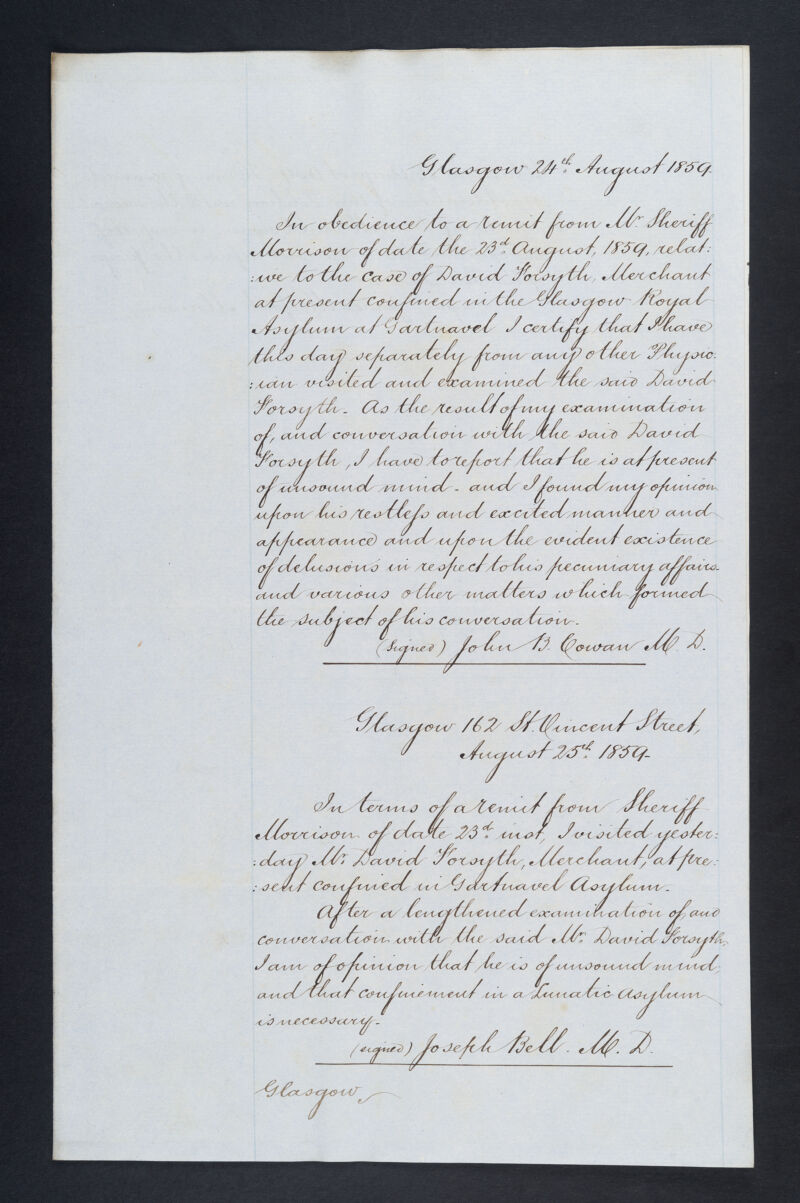 Glasgow 24th. August 1859.
In obedience to a remit from Mr. Sheriff
Morrison of date the 23d. August, 1859, relat:
:ive to the case of David Forsyth, Merchant
at present confined in the Glasgow Royal
Asylum at Gartnavel I certify that I have
this day separately from any other Physic:
:ian visited and examined the said David
Forsyth. As the result of my examination
of, and conversation with the said David
Forsyth, I have to report that he is at present
of unsound mind - and I found my opinion
upon his restless and excited manner and
appearance and upon the evident existence
of delusions in respect to his pecuniary affairs
and various other matters which formed
the subject of his conversation.
(signed) John B. Cowan M. D.
Glasgow 162 St. Vincent Street,
August 25th. 1859.
In terms of a remit from Sheriff
Morrison of date 23d. inst, I visited yester:
:day Mr. David Forsyth, Merchant, at pre:
:sent confined in Gartnavel Asylum.
After a lengthened examination of, and
conversation with the said Mr. David Forsyth,
I am of opinion that he is of unsound mind
and that confinement in a Lunatic Asylum
is necessary.
(signed) Joseph Bell. M. D.
Glasgow